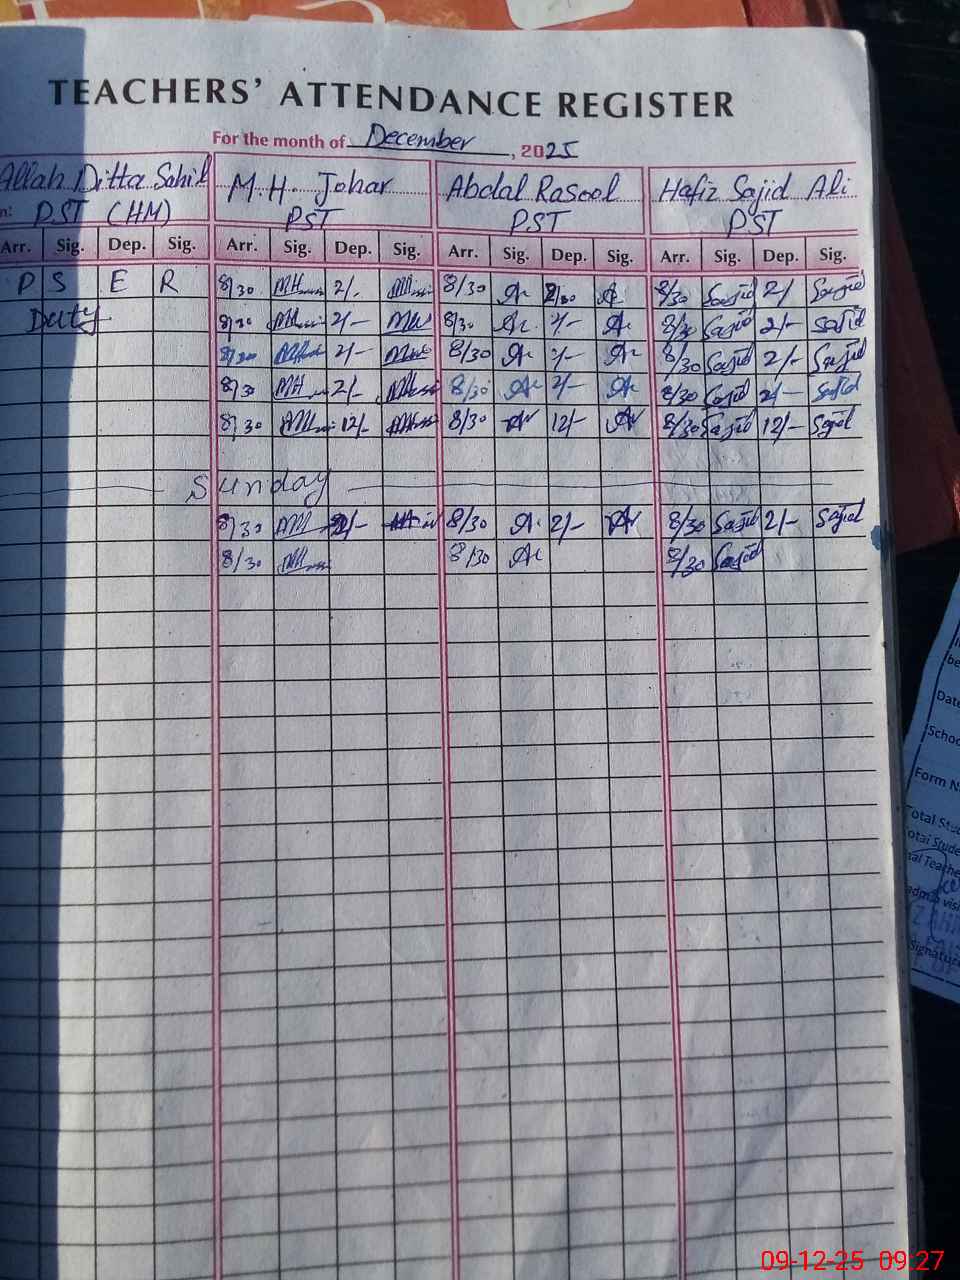 TEACHERS' ATTENDANCE REGISTER
For the month of December, 2025
Allah Ditta Sahil M.H. Johar Abdal Rasool Hafiz Sajid Ali
n: PST (HM) PST PST PST
Arr. Sig. Dep. Sig. Arr. Sig. Dep. Sig. Arr. Sig. Dep. Sig. Arr. Sig. Dep. Sig.
P S E R 8/30 MH 2/- 8/30 Ar 2/30 Ar 8/30 Sajid 2/ Sajid
Duty 8/30 MH 2/- MH 8/30 Ar 2/- Ar 8/30 Sajid 2/- Sajid
8/30 2/- 8/30 Ar 2/- Ar 8/30 Sajid 2/- Sajid
8/30 MH 2/- 8/30 Ar 2/- Ar 8/30 Sajid 2/- Sajid
8/30 12/- 8/30 Ar 12/- Ar 8/30 Sajid 12/- Sajid
Sunday
8/30 2/- 8/30 Ar 2/- Ar 8/30 Sajid 2/- Sajid
8/30 8/30 Ar 8/30 Sajid
Date
Schoo
Form N
Total Stu
otal Stude
nal Teache
admin visi
Signature
09-12-25 09:27